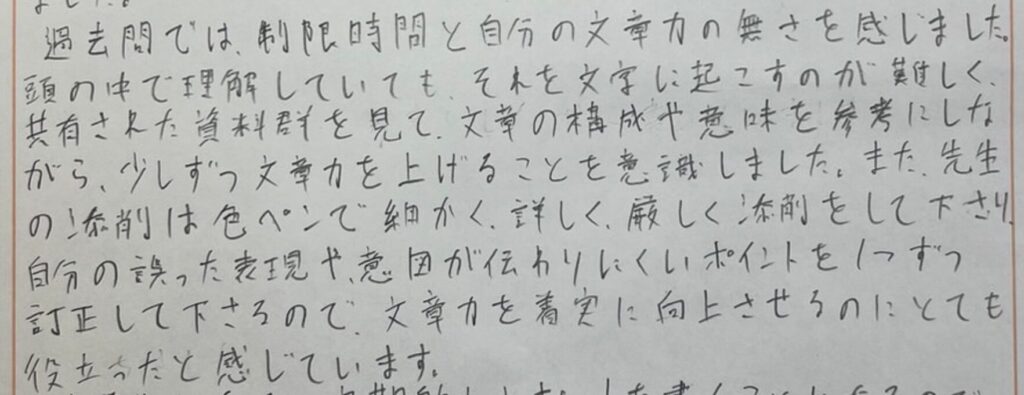 ました。
過去問では、制限時間と自分の文章力の無さを感じました。
頭の中で理解していても、それを文字に起こすのが難しく、
共有された資料群を見て、文章の構成や意味を参考にしな
がら、少しずつ文章力を上げることを意識しました。また、先生
の添削は色ペンで細かく、詳しく、厳しく添削をして下さり、
自分の誤った表現や、意図が伝わりにくいポイントを1つずつ
訂正して下さるので、文章力を着実に向上させるのにとても
役立ったと感じています。